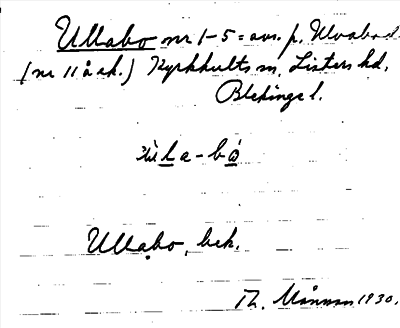 Ullabo nr 1-5 = avs. p. Ulvabod
(nr 11 å ak.) Kyrkhults sn, Listers hd,
Blekinge l.
la-bo
Ullabo, bek.
Th. Månsson 1930.